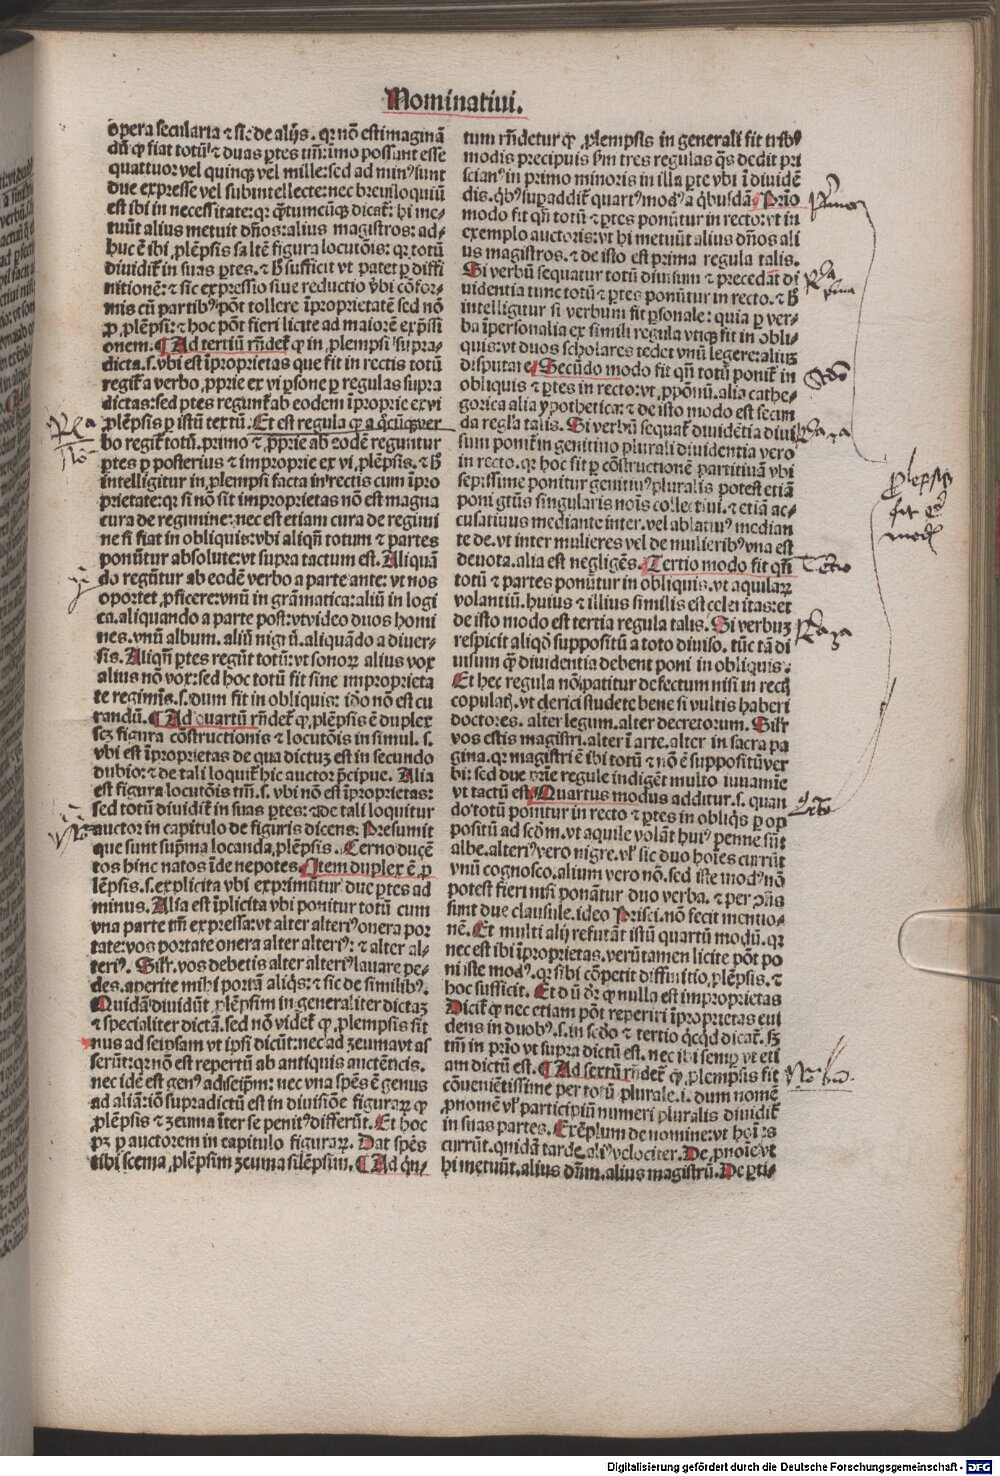 Nominatiui.
opera secularia ⁊ sic de alijs. qꝛ nō est imaginā
dū ꝙ fiat totū ⁊ duas ꝑtes tm̄: imo possunt esse
quattuor vel quinqꝫ vel mille: sed ad minꝰ sunt
due expresse vel subintellecte: nec breuiloquiū
est ibi in necessitate: qꝛ q̄tumcūqꝫ dicat̄: hi me⸗
tuūt alius metuit dn̄os: alius magistros: ad⸗
huc ē ibi ꝓlēpsis saltē figura locutōis: qꝛ totū
diuidit̄ in suas ꝑtes. ⁊ h̄ sufficit vt patet ꝑ diffi
nitionē: ⁊ sic expressio siue reductio v̄bi cōfor⸗
mis cū partibꝰ pōt tollere īproprietatē sed nō
ꝓlēpsī: ⁊ hoc pōt fieri licite ad maiorē exp̄ssi
onem. ¶ Ad tertiū rn̄det̄ ꝙ in ꝓlempsi supra⸗
dicta .s. vbi est īproprietas que fit in rectis totū
regit̄ a verbo ꝓprie ex vi ꝑsone ꝑ regulas supra
dictas: sed ꝑtes regunt̄ ab eodem īproprie ex vi
ꝓlēpsis ꝑ istū textū. Et est regula ꝙ a q̄cūqꝫ ver
bo regit̄ totū. primo ⁊ ꝓprie ab eodē reguntur
ꝑtes ꝑ posterius ⁊ improprie ex vi ꝓlēpsis. ⁊ h̄
intelligitur in ꝓlempsi facta in rectis cum īpro
prietate: qꝛ si nō sit improprietas nō est magna
cura de regimine: nec est etiam cura de regimi
ne si fiat in obliquis: vbi aliqn̄ totum ⁊ partes
ponūtur absolute: vt supra tactum est. Aliquā
do regūtur ab eodē verbo a parte ante: vt nos
oportet ꝓficere: vnū in grāmatica: aliū in logi
ca. aliquando a parte post: vt video duos homi
nes. vnū album. aliū nigrū. aliquādo a diuer⸗
sis. Aliqn̄ ꝑtes regūt totū: vt sonoꝝ alius vox
alius nō vox: sed hoc totū fit sine improprieta
te regimīs .s. dum fit in obliquis: iō nō est cu
randū. ¶ Ad quartū rn̄det̄ ꝙ ꝓlēpsis ē duplex
scꝫ figura cōstructionis ⁊ locutōis in simul .s.
vbi est īproprietas de qua dictuꝫ est in secundo
dubio: ⁊ de tali loquit̄ hic auctor p̄cipue. Alia
est figura locutōis tm̄ .s. vbi nō est īproprietas:
sed totū diuidit̄ in suas ꝑtes: ⁊ de tali loquitur
auctor in capitulo de figuris dicens. Presumit
que sunt sup̄ma locanda ꝓlēpsis. Cerno ducē
tos hinc natos īde nepotes. ¶ Item duplex ē ꝓ
lēpsis .s. explicita vbi exprimūtur due ꝑtes ad
minus. Alia est īplicita vbi ponitur totū cum
vna parte tm̄ expressa: vt alter alteriꝰ onera por
tate: vos portate onera alter alteriꝰ: ⁊ alter al⸗
teriꝰ. Silr̄. vos debetis alter alteriꝰ lauare pe⸗
des. aperite mihi portā aliqs̄: ⁊ sic de similibꝰ.
Quidā diuidūt ꝓlēpsim in generaliter dictaꝫ
⁊ specialiter dictā. sed nō videt̄ ꝙ ꝓlempsis sit
nus ad seipsam vt ipsi dicūt: nec ad zeuma vt as
serūt: qꝛ nō est repertū ab antiquis auctēticis.
nec idē est genꝰ ad seipm̄: nec vna spēs ē genus
ad aliā: iō supradictū est in diuisiōe figuraꝝ ꝙ
ꝓlēpsis ⁊ zeuma īter se penitꝰ differūt. Et hoc
pꝫ ꝑ auctorem in capitulo figuraꝝ. Dat spēs
tibi scema ꝓlēpsim zeuma silēpsim. ¶ Ad qn̄⸗
tum rn̄detur ꝙ ꝓlempsis in generali fit tribꝰ
modis precipuis ẜm tres regulas q̄s dedit pri
scianꝰ in primo minoris in illa ꝑte vbi ī diuidē
dis. qͥbꝰ superaddit̄ quartꝰ modꝰ a qͥbusdā. ¶ Prīo
modo fit qn̄ totū ⁊ ꝑtes ponūtur in recto: vt in
exemplo auctoris: vt hi metuūt alius dn̄os ali
us magistros. ⁊ de isto est prima regula talis.
Si verbū sequatur totū diuisum ⁊ precedāt di
uidentia tunc totū ⁊ ꝑtes ponūtur in recto. ⁊ h̄
intelligitur si verbum fit ꝑsonale: quia ꝑ ver⸗
ba īpersonalia ex simili regula vtiqꝫ fit in obli⸗
quis: vt duos scholares tedet vnū legere: aliuꝫ
disputare. ¶ Secūdo modo fit qn̄ totū ponit̄ in
obliquis ⁊ ꝑtes in recto: vt ꝓpōnū. alia cathe⸗
gorica alia ypothetica: ⁊ de isto modo est secun
da regla talis. Si verbū sequat̄ diuidētia diui
sum ponit̄ in genitiuo plurali diuidentia vero
in recto. qꝛ hoc fit ꝑ cōstructionē partitiuā vbi
sepissime ponitur genitiuꝰ pluralis potest etiā
poni gtūs singularis noīs collectiui. ⁊ etiā ac⸗
cusatiuus mediante inter. vel ablatiuꝰ median
te de. vt inter mulieres vel de mulieribꝰ vna est
deuota. alia est negligēs. ¶ Tertio modo fit qn̄
totū ⁊ partes ponūtur in obliquis. vt aquilaꝝ
volantiū. huius ⁊ illius similis est celeritas: et
de isto modo est tertia regula talis. Si verbuꝫ
respicit aliqd̄ suppositū a toto diuiso. tūc tā di
uisum ꝙ̄ diuidentia debent poni in obliquis.
Et hec regula nō patitur defectum nisi in rectꝭ
copulatꝭ. vt clerici studete bene si vultis haberi
doctores. alter legum. alter decretorum. Silr̄
vos estis magistri. alter ī arte. alter in sacra pa
gina. qꝛ magistri ē ibi totū ⁊ nō ē suppositū ver
bi: sed due prīe regule indigēt multo iuuamīe
vt tactū est. ¶ Quartus modus additur .s. quan
do totū ponitur in recto ⁊ ꝑtes in obliqͥs ꝑ op
positū ad scd̄m. vt aquile volāt huiꝰ penne sūt
albe. alteriꝰ vero nigre. vl̄ sic duo hoīes currūt
vnū cognosco. alium vero nō. sed iste modꝰ nō
potest fieri nisi ponātur duo verba. ⁊ per ꝯn̄s
sunt due clausule. ideo Prisci. nō fecit mentio⸗
nē. Et multi alij refutāt istū quartū modū. qꝛ
nec est ibi īproprietas. verūtamen licite pōt po
ni iste modꝰ. qꝛ sibi cōpetit diffinitio ꝓlēpsis. ⁊
hoc sufficit. Et dū dr̄ ꝙ nulla est improprietas
Dicit̄ ꝙ nec etiam pōt reperiri īproprietas eui
dens in duobꝰ .s. in scd̄o ⁊ tertio qͥcqͥd dicāt. sꝫ
tm̄ in prīo vt supra dictū est. nec ibi semp̄ vt eti
am dictū est. ¶ Ad sextū rn̄det̄ ꝙ ꝓlempsis fit
cōueniētissime per totū plurale .i. dum nomē
ꝓnomē vl̄ participiū numeri pluralis diuidit̄
in suas partes. Exēplum de nomine: vt hoīes
currūt. quidā tarde. aliꝰ velociter. De ꝓnoīe vt
hi metuūt. alius dn̄m. alius magistrū. De ꝑti⸗
prolepsis
fit
Digitalisierung gefördert durch die Deutsche Forschungsgemeinschaft - DFG